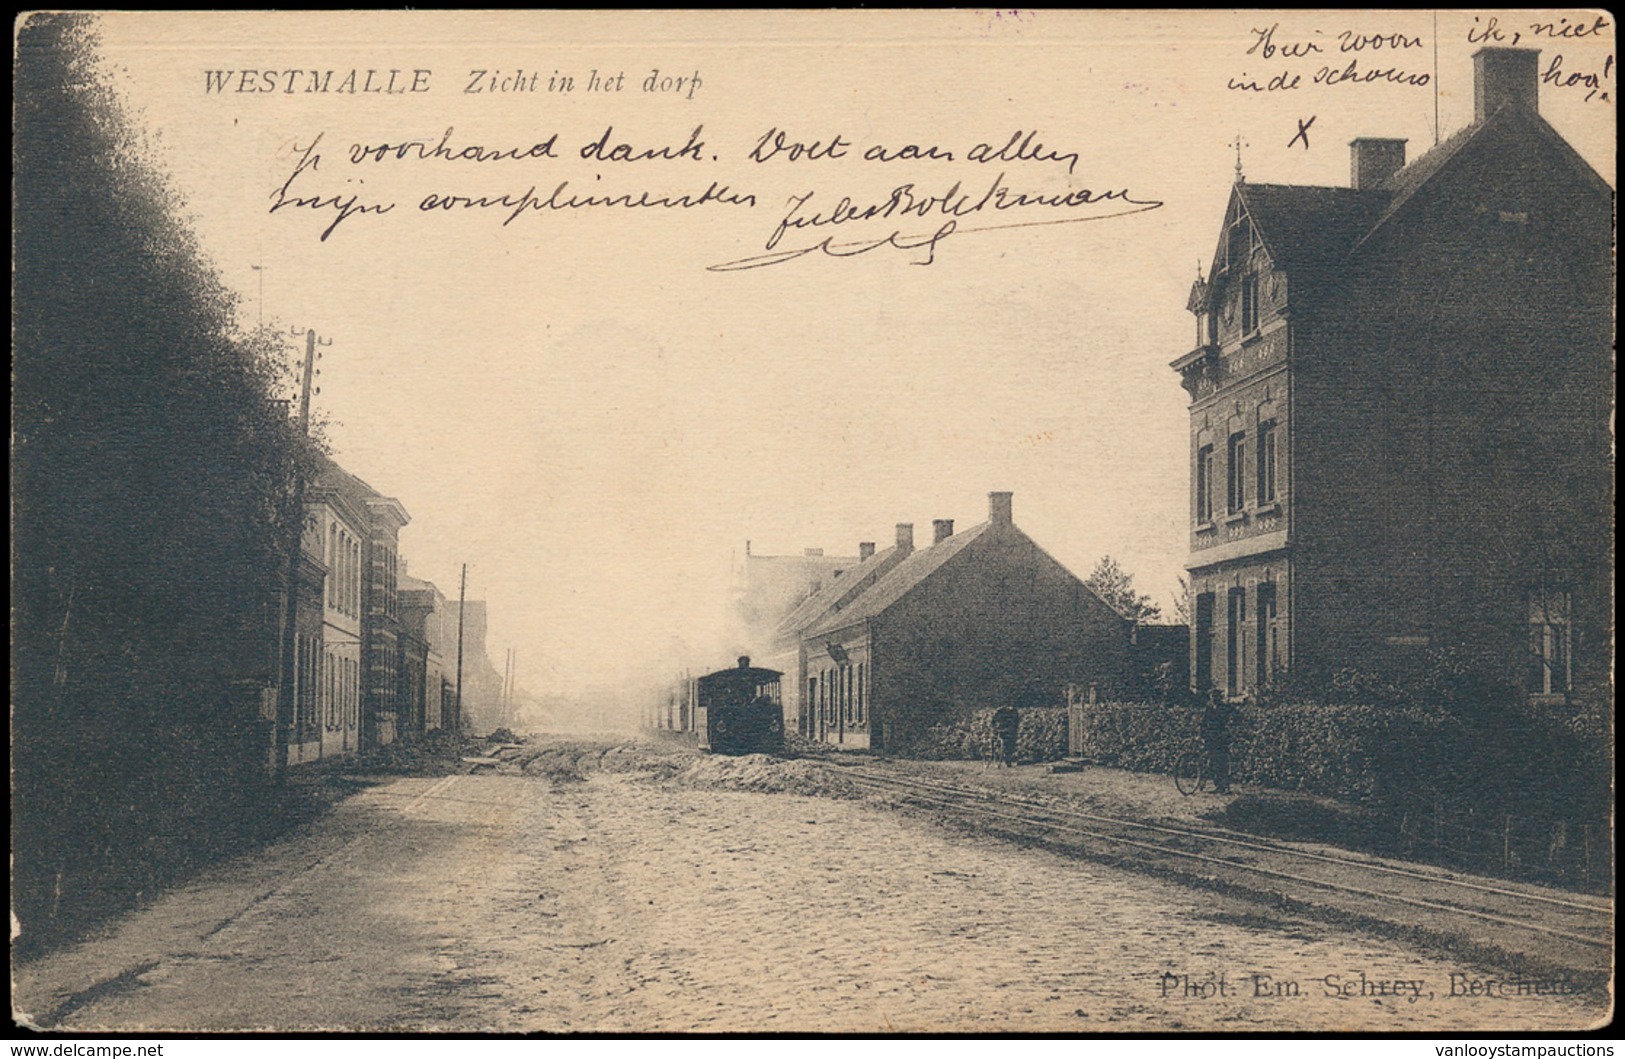 WESTMALLE Zicht in het dorp
Hier woon ik, niet
in de schouw hoor!
X
Op voorhand dank. Doet aan allen
mijn complimenten Jules Bolckmans
Phot. Em. Schrey, Berchem.
delcampe.net
vanlooystampauctions